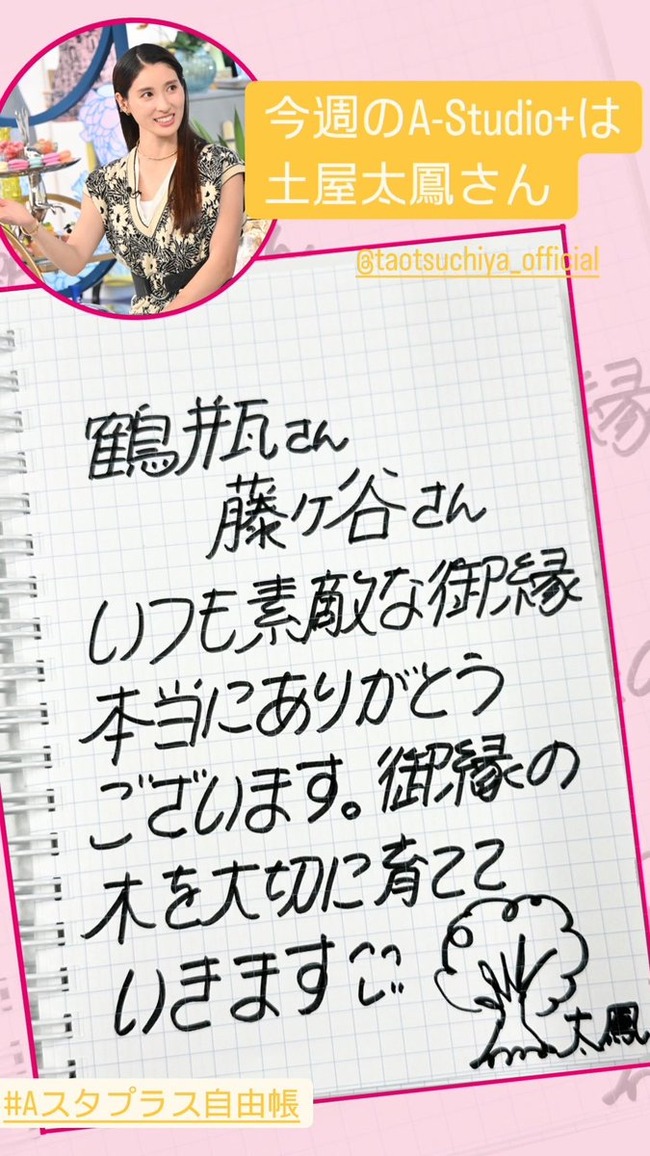 今週のA-Studio+は
土屋太鳳さん
@taotsuchiya_official
鶴瓶さん
藤ヶ谷さん
いつも素敵な御縁
本当にありがとう
ございます。御縁の
木を大切に育てて
いきます
太鳳
#Aスタプラス自由帳